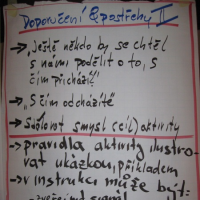 Doporučení & postřehy II
→ „Ještě někdo by se chtěl
s námi podělit o to, s
čím přichází?"
→ „S čím odcházíte"
→ Sdělovat smysl (cíl) aktivity
→ pravidla aktivity ilustro-
vat ukázkou, příkladem
→ v instrukci může být: